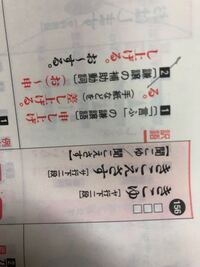 156
きこゆ［ヤ行下二段］
きこえさす［サ行下二段］
【聞こゆ／聞こえさす】
訳語
1 「言ふ」の謙譲語 申し上げ
る。（手紙などを）差し上げる。
2 【謙譲の補助動詞】（お）〜申
し上げる。お〜する。
例
1